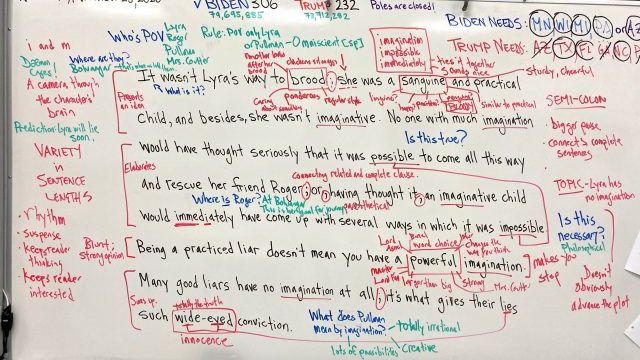 BIDEN 306
79,695,885
TRUMP 232
73,712,282
Poles are closed!
BIDEN NEEDS: MN WI MI PA or AZ
TRUMP NEEDS: AZ TX FL GA NC PA
Who's POV
Lyra
Roger
Pullman
Mrs. Coulter
Rule: POV only Lyra
or Pullman - Omniscient
imagination
impossible
immediately
ties it together
sounds nice
i and m
Where are they?
Bolvangar
A camera through
the character's
brain
Prediction: Lyra will lie
soon.
VARIETY
IN
SENTENCE
LENGTHS
rhythm
suspense
keeps reader
thinking
keeps reader
interested
It wasn't Lyra's way to brood; she was a sanguine and practical
sturdy, cheerful
What is it?
Presents
an idea
Caring
about something
ponderous
regular style
happy
practical
BLOODY
similar to practical
Child, and besides, she wasn't imaginative. No one with much imagination
Is this true?
Would have thought seriously that it was possible to come all this way
Elaborates
connecting related and complete clause.
and rescue her friend Roger; or, having thought it, an imaginative child
Where is Roger? At Bolvangar
This is her goal for journey
parenthetical
would immediately have come up with several ways in which it was impossible.
Blunt;
strong opinion
Lord
Asriel
word choice
changes the
way you think
Being a practiced liar doesn't mean you have a powerful imagination.
makes you
stop
master
larger than big
strong
Mrs. Coulter
Many good liars have no imagination at all; it's what gives their lies
Sums up.
totally the truth
such wide-eyed conviction.
innocence
What does Pullman
mean by imagination?
totally irrational
Creative
lots of possibilities
SEMI-COLON
bigger pause
connects complete
sentences
TOPIC - Lyra has
no imagination
Is this
necessary?
Philosophical
Doesn't
obviously
advance the plot